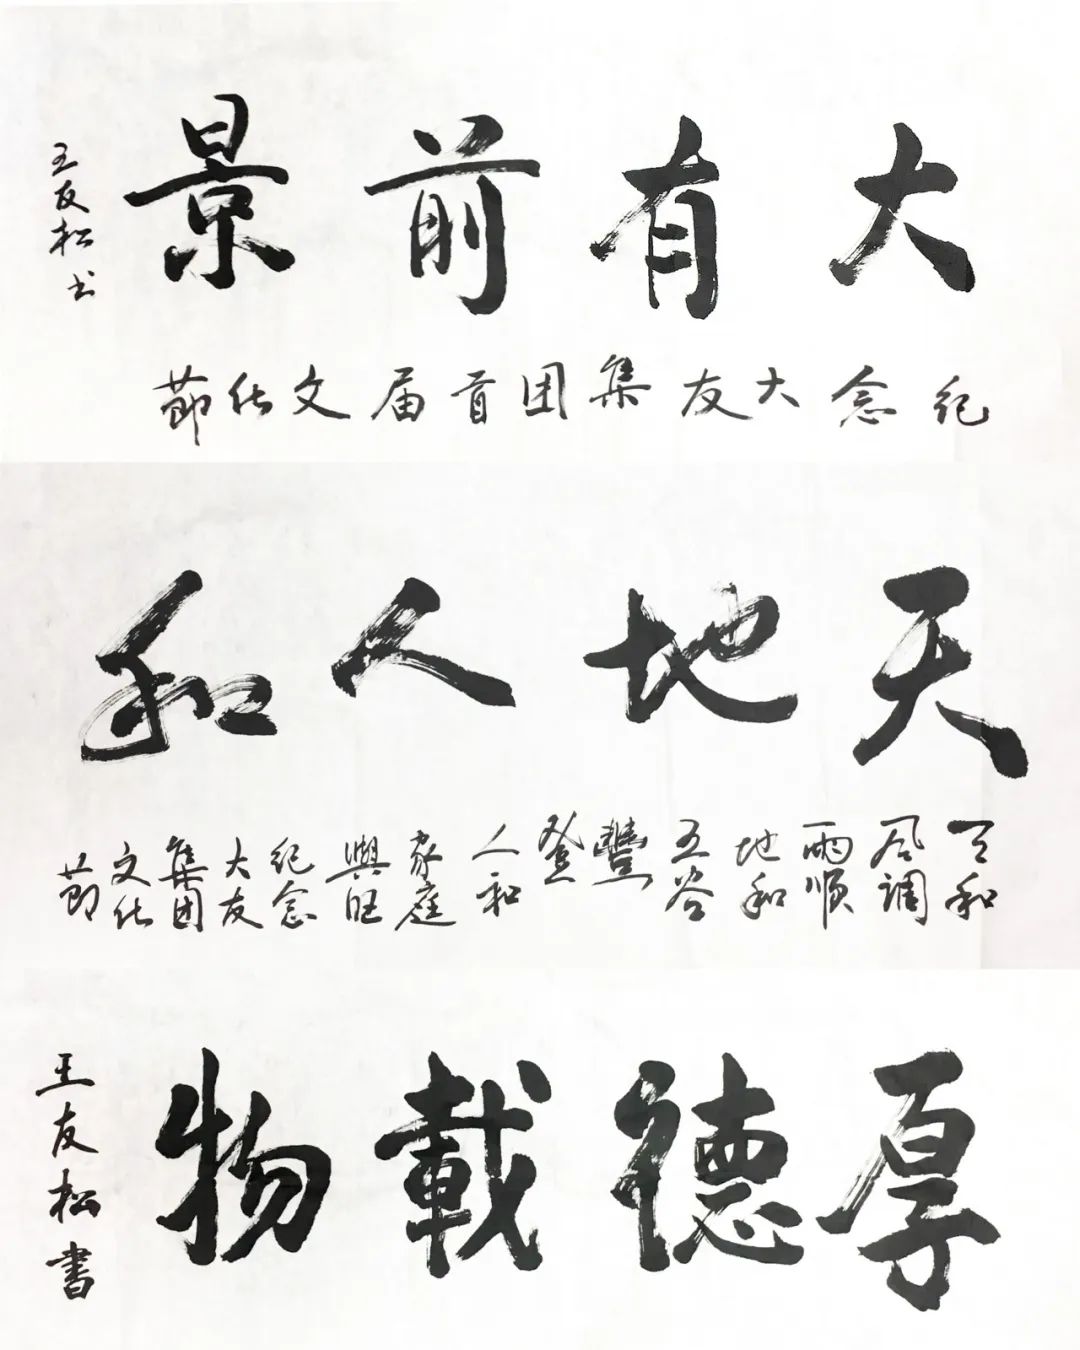 大有前景
纪念大友集团首届文化節
王友松书
天地人和
天和风调雨顺地和五谷豐登人和家庭興旺纪念大友集团文化節
厚德載物
王友松書